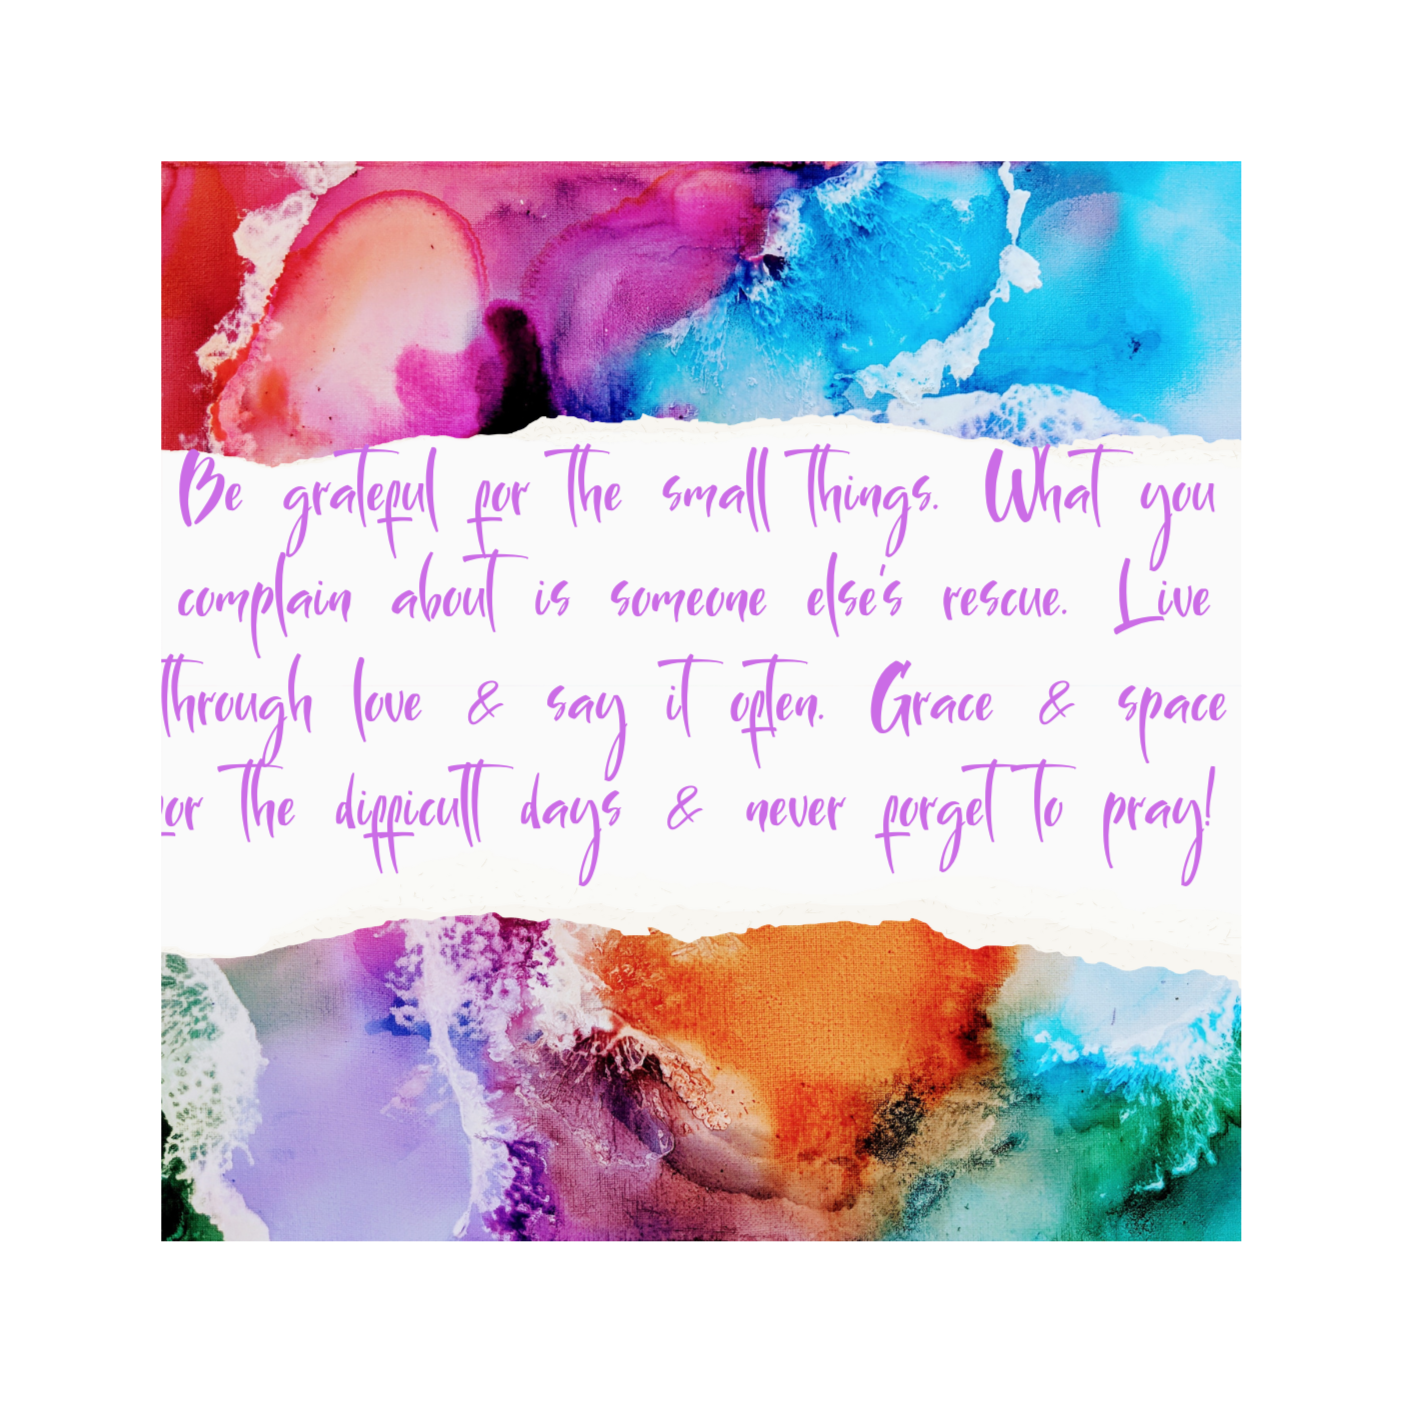 Be grateful for the small things. What you
complain about is someone else's rescue. Live
through love & say it often. Grace & space
for the difficult days & never forget to pray!